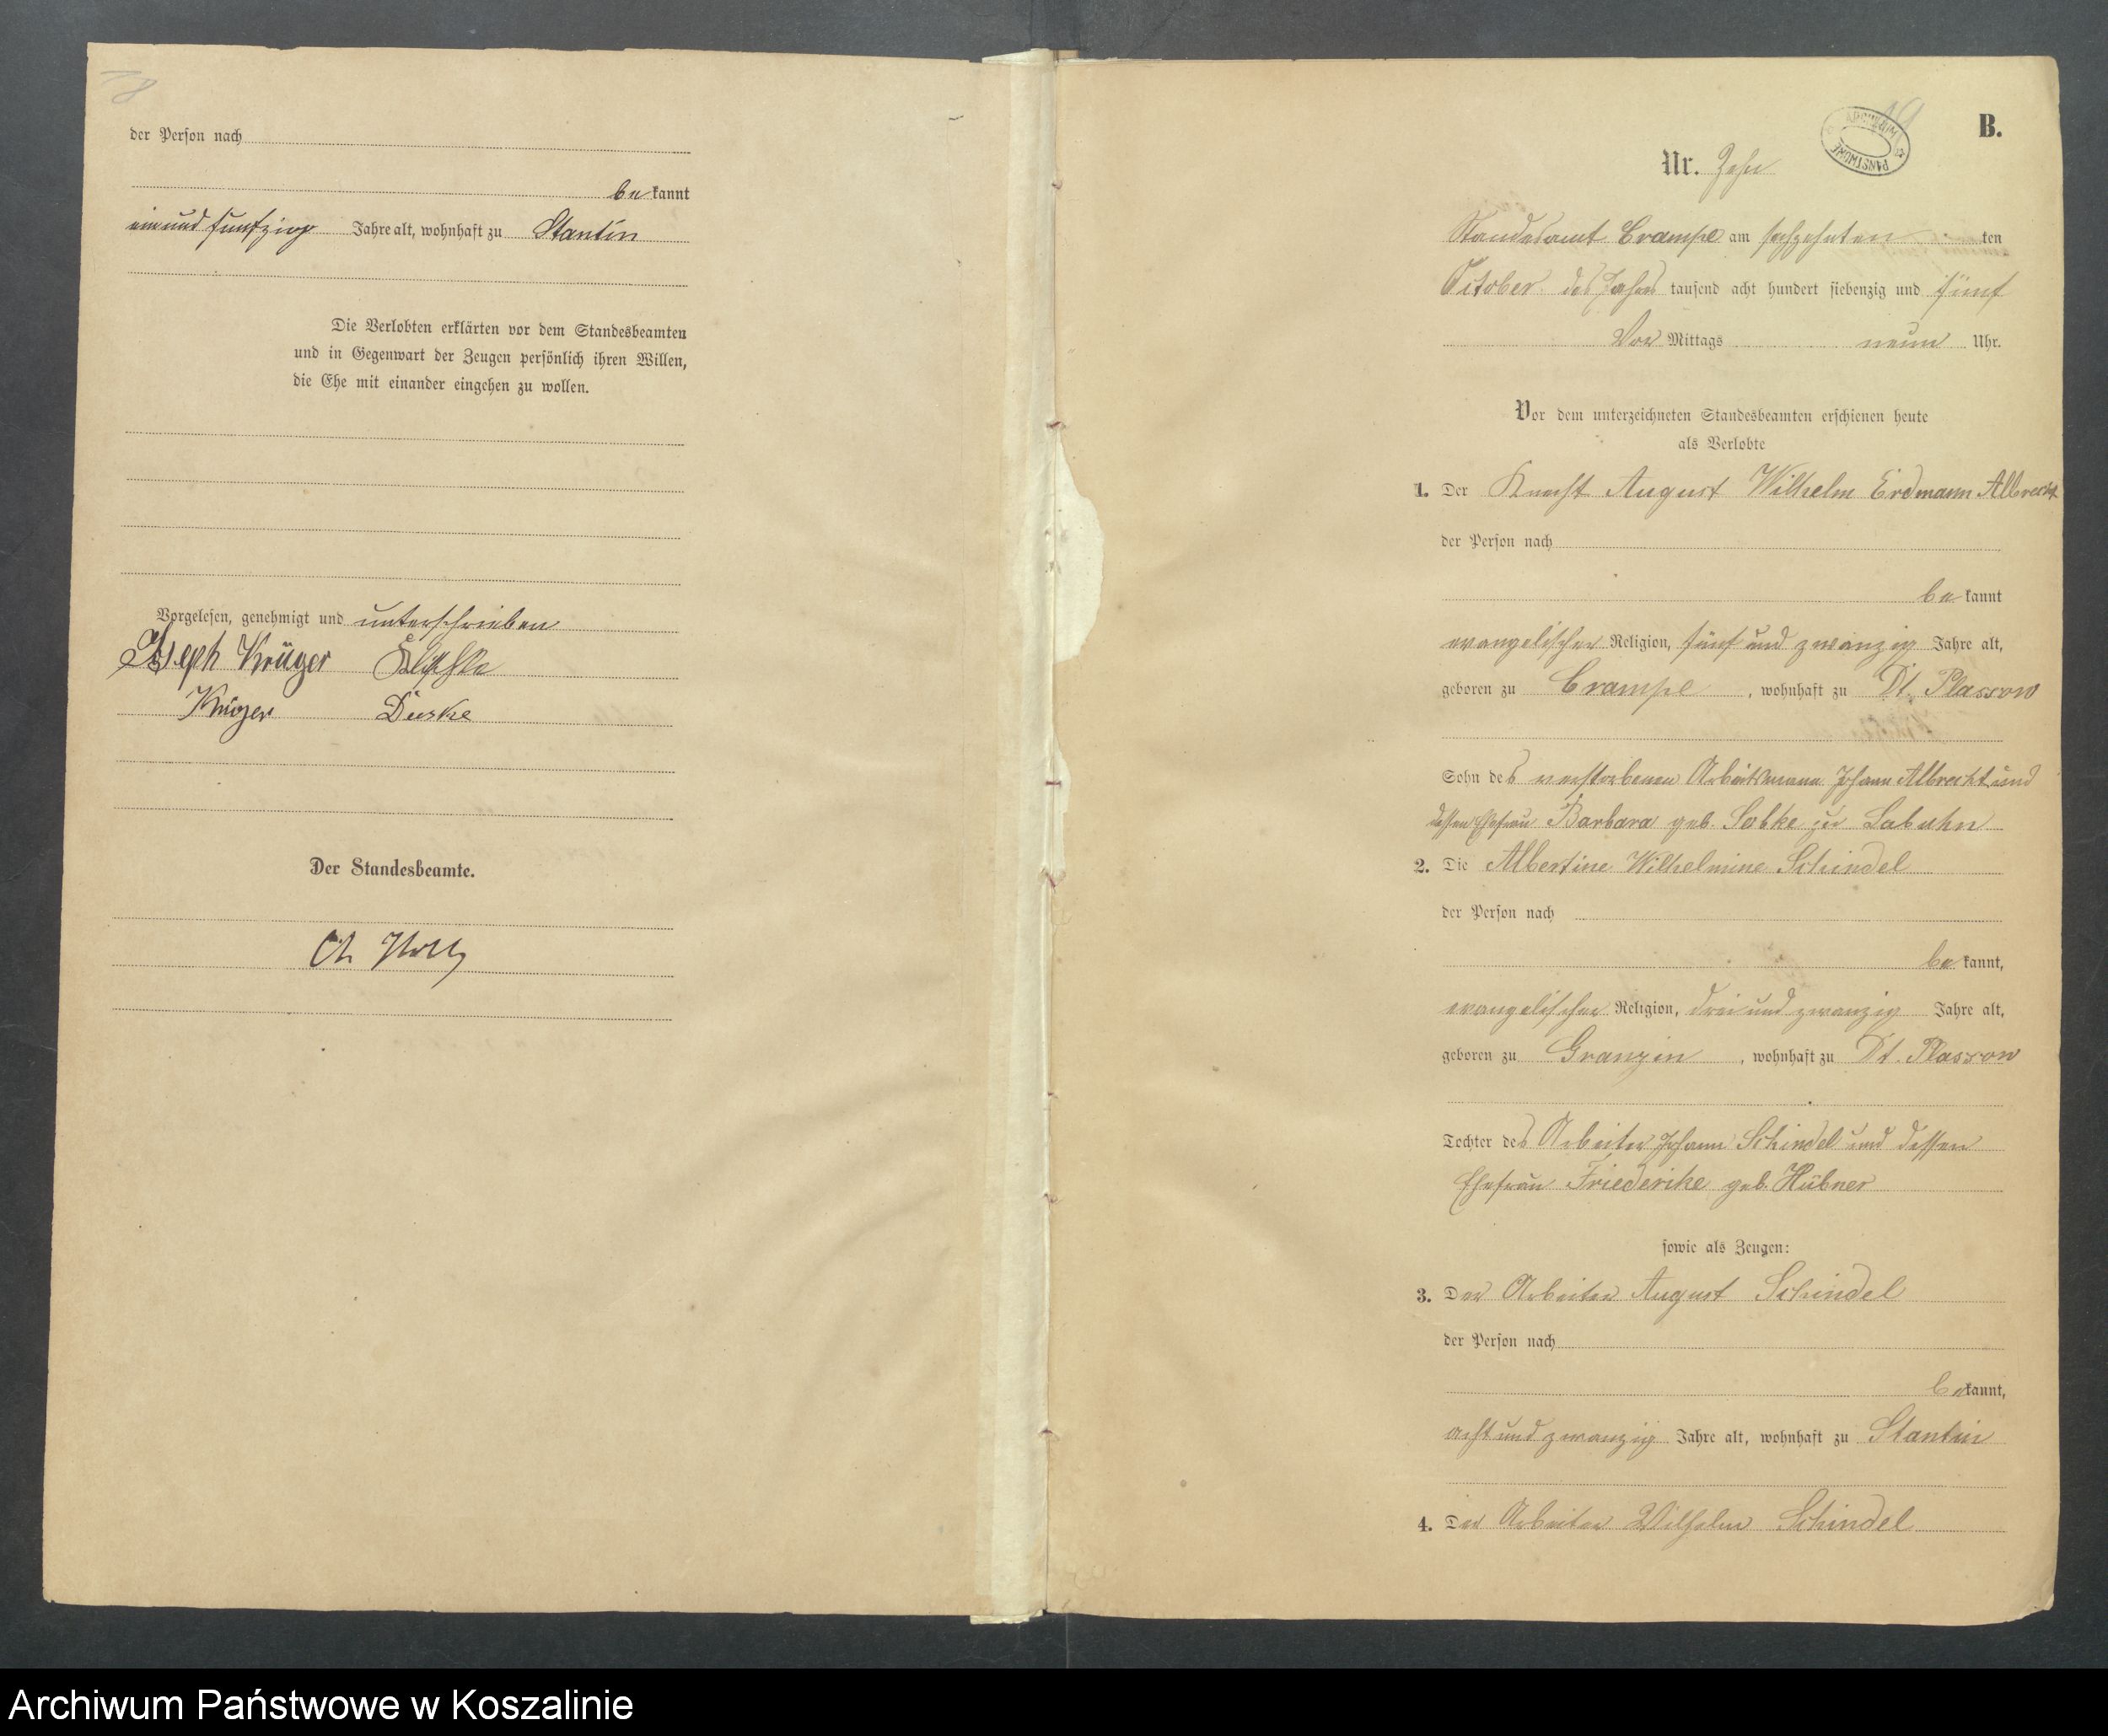 18
der Person nach
be kannt
einundfunfzig Jahre alt, wohnhaft zu Stantin
Die Verlobten erklärten vor dem Standesbeamten
und in Gegenwart der Zeugen persönlich ihren Willen,
die Ehe mit einander eingehen zu wollen.
Vorgelesen, genehmigt und unterschrieben
Joseph Krüger
Krüger Duske
Der Standesbeamte.
19
B.
ARCHIWUM PAŃSTWOWE
Nr. Zehn
Standesamt Crampe am sechzehnten ten
October des Jahres tausend acht hundert siebenzig und fünf
Vor Mittags neun Uhr.
Vor dem unterzeichneten Standesbeamten erschienen heute
als Verlobte
1. Der Knecht August Wilhelm Erdmann Albrecht
der Person nach
be kannt
evangelischer Religion, fünf und zwanzig Jahre alt,
geboren zu Crampe, wohnhaft zu Dt. Plassow
Sohn des verstorbenen Arbeitsmann Johann Albrecht und
dessen Ehefrau Barbara geb. Sobke zu Labuhn
2. Die Albertine Wilhelmine Schindel
der Person nach
be kannt,
evangelischer Religion, drei und zwanzig Jahre alt,
geboren zu Granzin, wohnhaft zu Dt. Plassow
Tochter des Arbeiter Johann Schindel und dessen
Ehefrau Friederike geb. Hübner
sowie als Zeugen:
3. Der Arbeiter August Schindel
der Person nach
be kannt,
acht und zwanzig Jahre alt, wohnhaft zu Stantin
4. Der Arbeiter Wilhelm Schindel
Archiwum Państwowe w Koszalinie